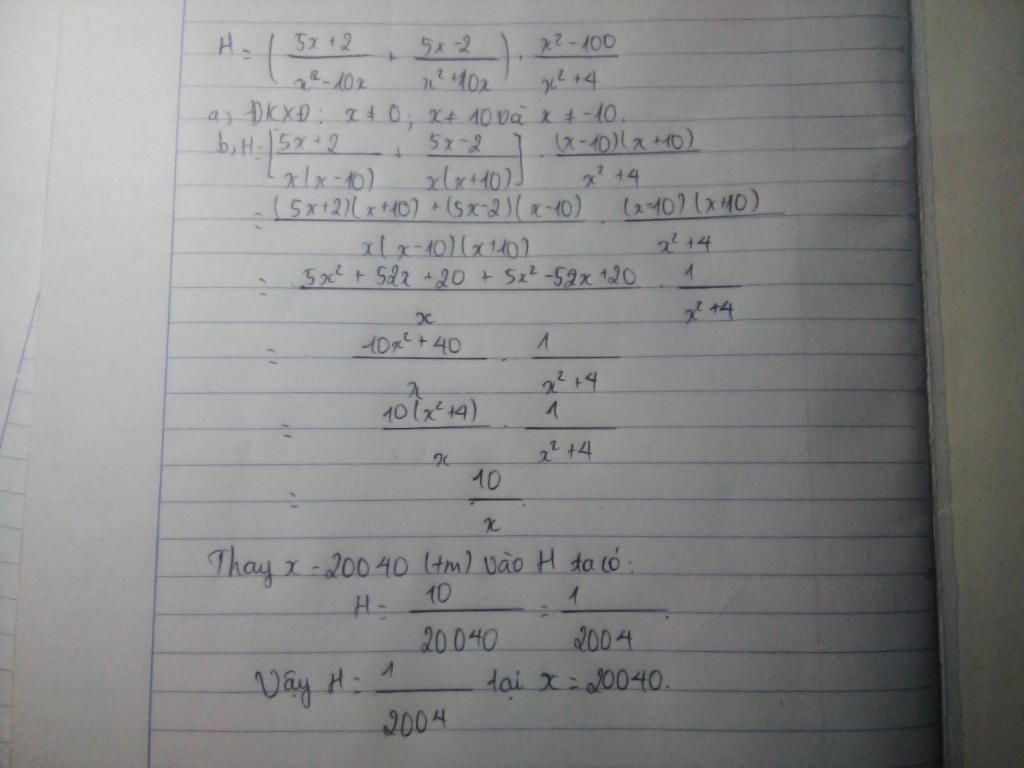 H = ( (5x+2)/(x²-10x) + (5x-2)/(x²+10x) ) . (x²-100)/(x²+4)
a, ĐKXĐ: x ≠ 0; x ≠ 10 và x ≠ -10.
b, H = [ (5x+2)/(x(x-10)) + (5x-2)/(x(x+10)) ] . ((x-10)(x+10))/(x²+4)
= ((5x+2)(x+10)+(5x-2)(x-10))/(x(x-10)(x+10)) . ((x-10)(x+10))/(x²+4)
= (5x²+52x+20+5x²-52x+20)/x . 1/(x²+4)
= (10x²+40)/x . 1/(x²+4)
= (10(x²+4))/x . 1/(x²+4)
= 10/x
Thay x = 20040 (tm) vào H ta có:
H = 10/20040 = 1/2004.
Vậy H = 1/2004 tại x = 20040.